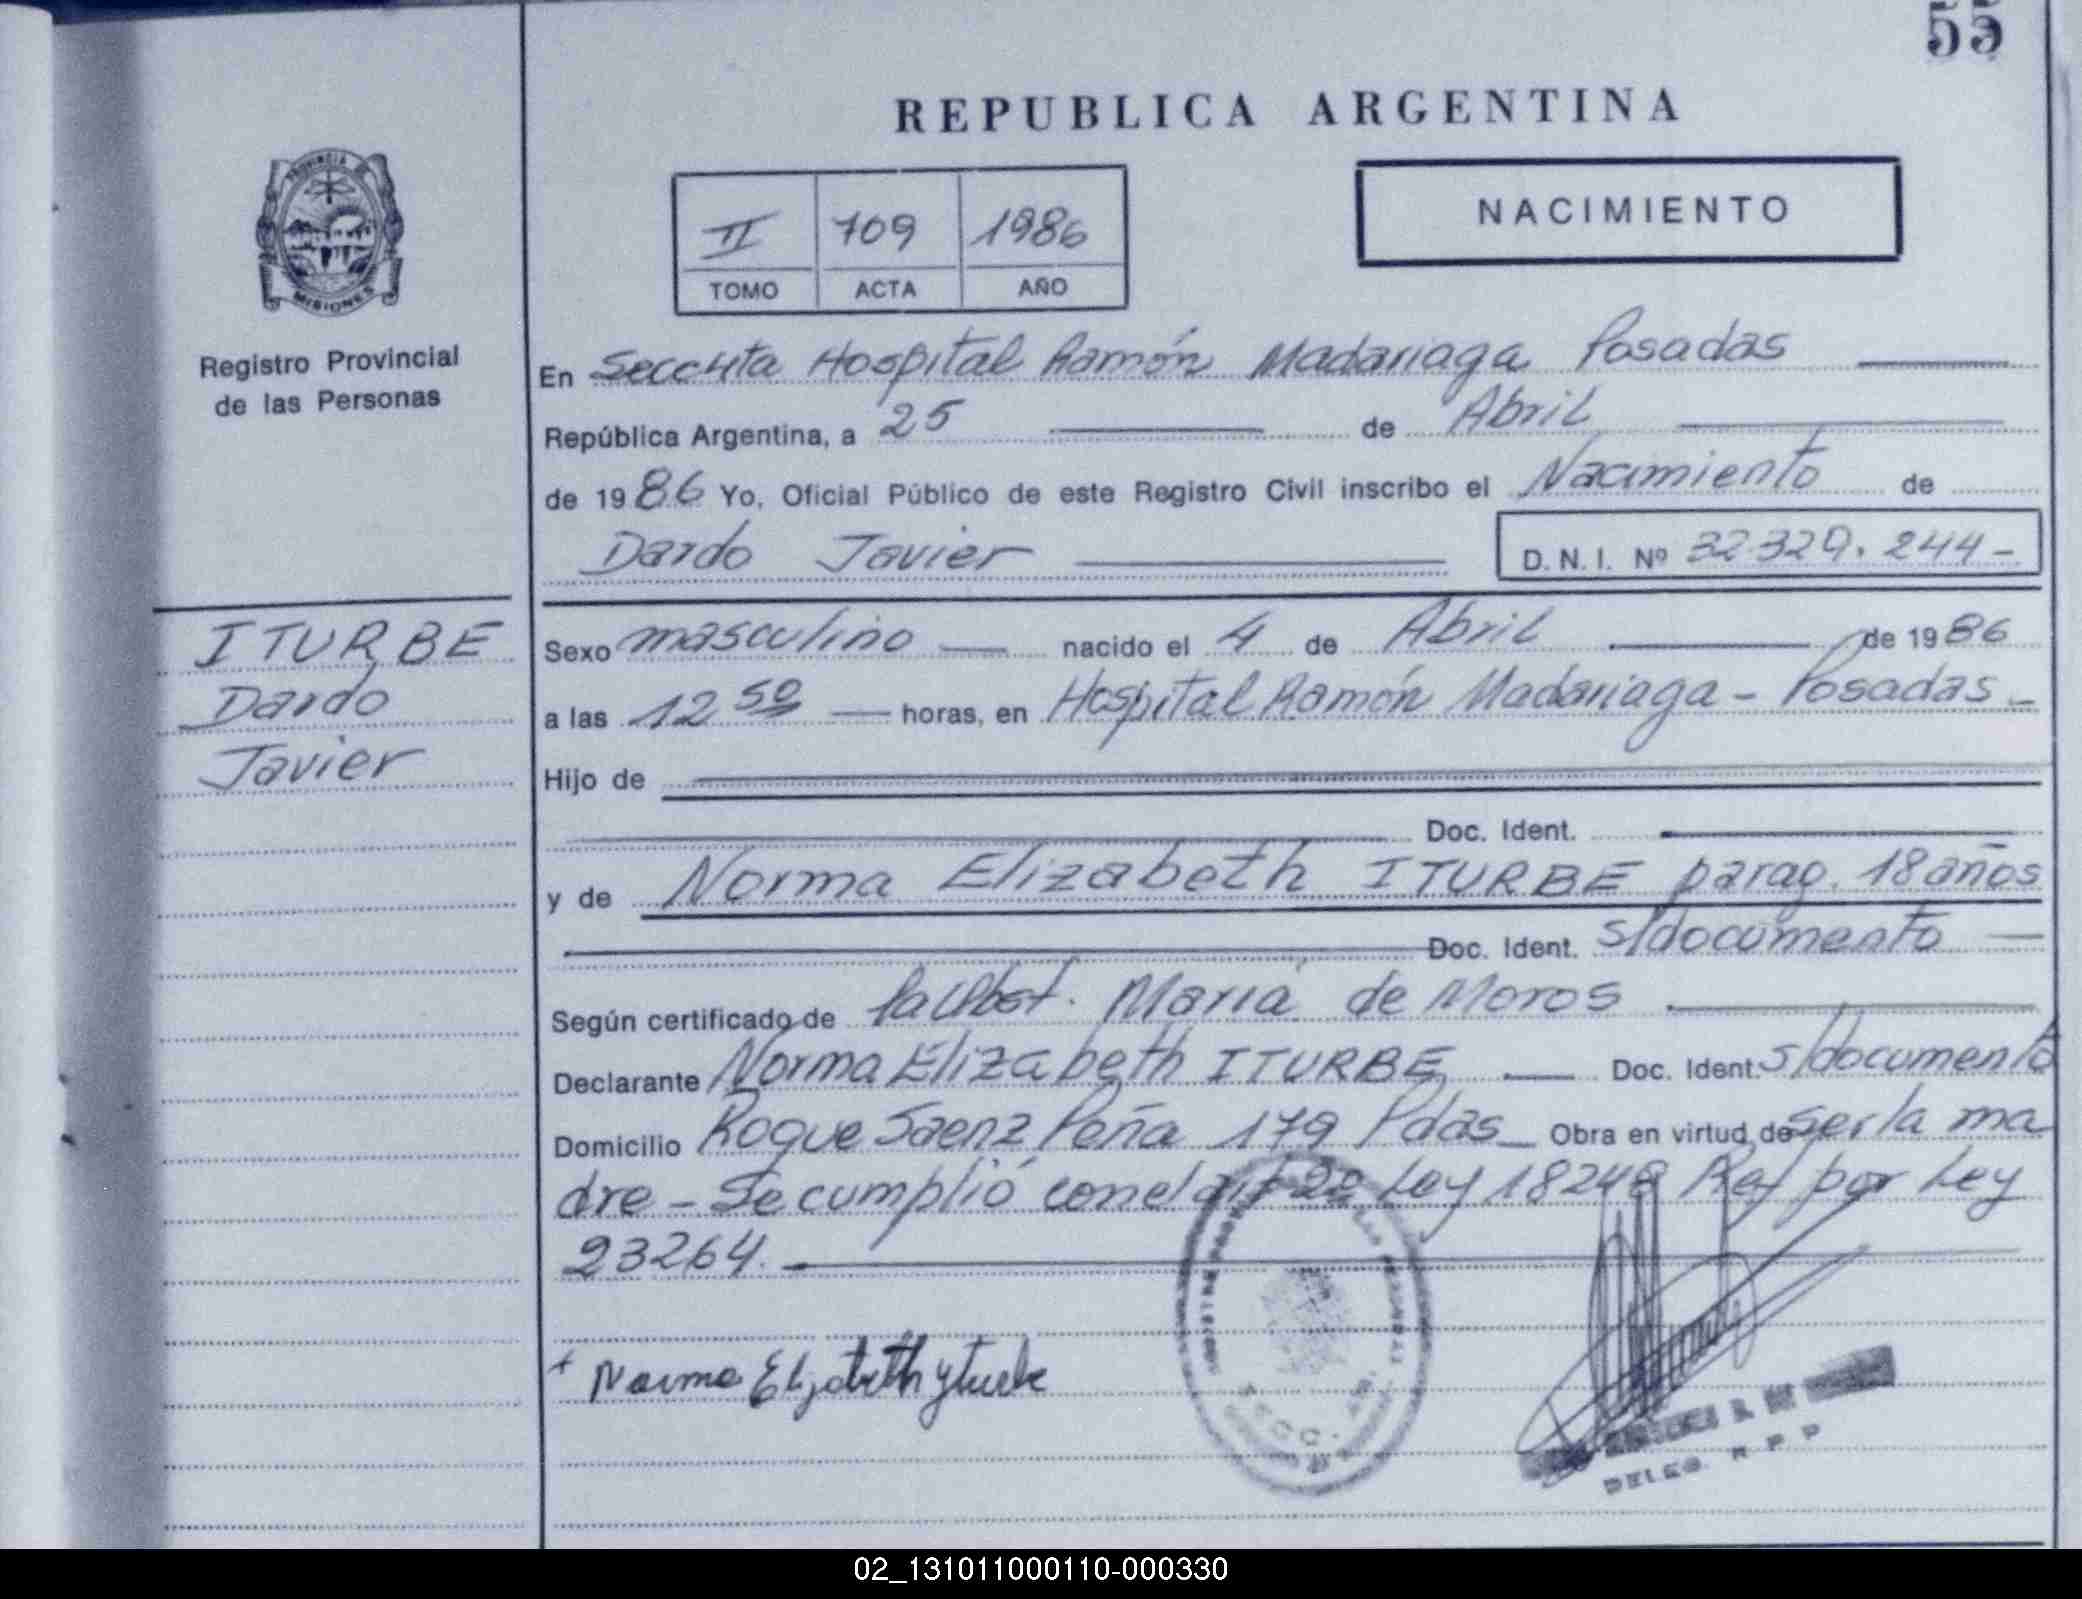 55
REPUBLICA ARGENTINA
PROVINCIA DE
MISIONES
Registro Provincial
de las Personas
II 709 1986
TOMO ACTA AÑO
NACIMIENTO
En Secc 4ta Hospital Ramón Madariaga Posadas
República Argentina, a 25 de Abril
de 1986 Yo, Oficial Público de este Registro Civil inscribo el Nacimiento de
Dardo Javier D. N. I. Nº 32.329.244-
ITURBE
Dardo
Javier
Sexo masculino nacido el 4 de Abril de 1986
a las 12 50 horas, en Hospital Ramón Madariaga - Posadas -
Hijo de
Doc. Ident.
y de Norma Elizabeth ITURBE parag. 18 años
Doc. Ident. s/documento
Según certificado de María de Moros
Declarante Norma Elizabeth ITURBE Doc. Ident. s/documento
Domicilio Roque Saenz Peña 179 Pdas - Obra en virtud de ser la ma
dre - Se cumplió con el art 2º Ley 18248 Ref por Ley
23264.
+ Norma Elizabeth Yturbe
SECC.
DELEG. R P P
02_131011000110-000330